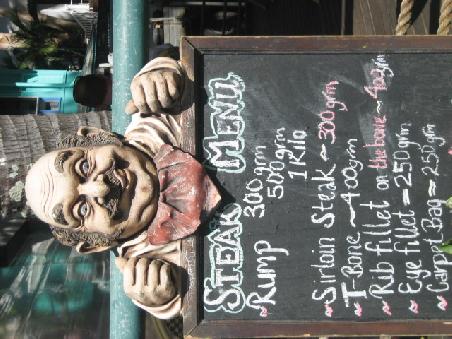 STEAK MENU
~Rump 300grm
500grm
1Kilo
~Sirloin Steak ~ 300grm
~T-Bone ~ 400grm
~Rib fillet on the bone ~ 400grm
~Eye fillet ~ 250grm
~Carpet Bag ~ 250grm